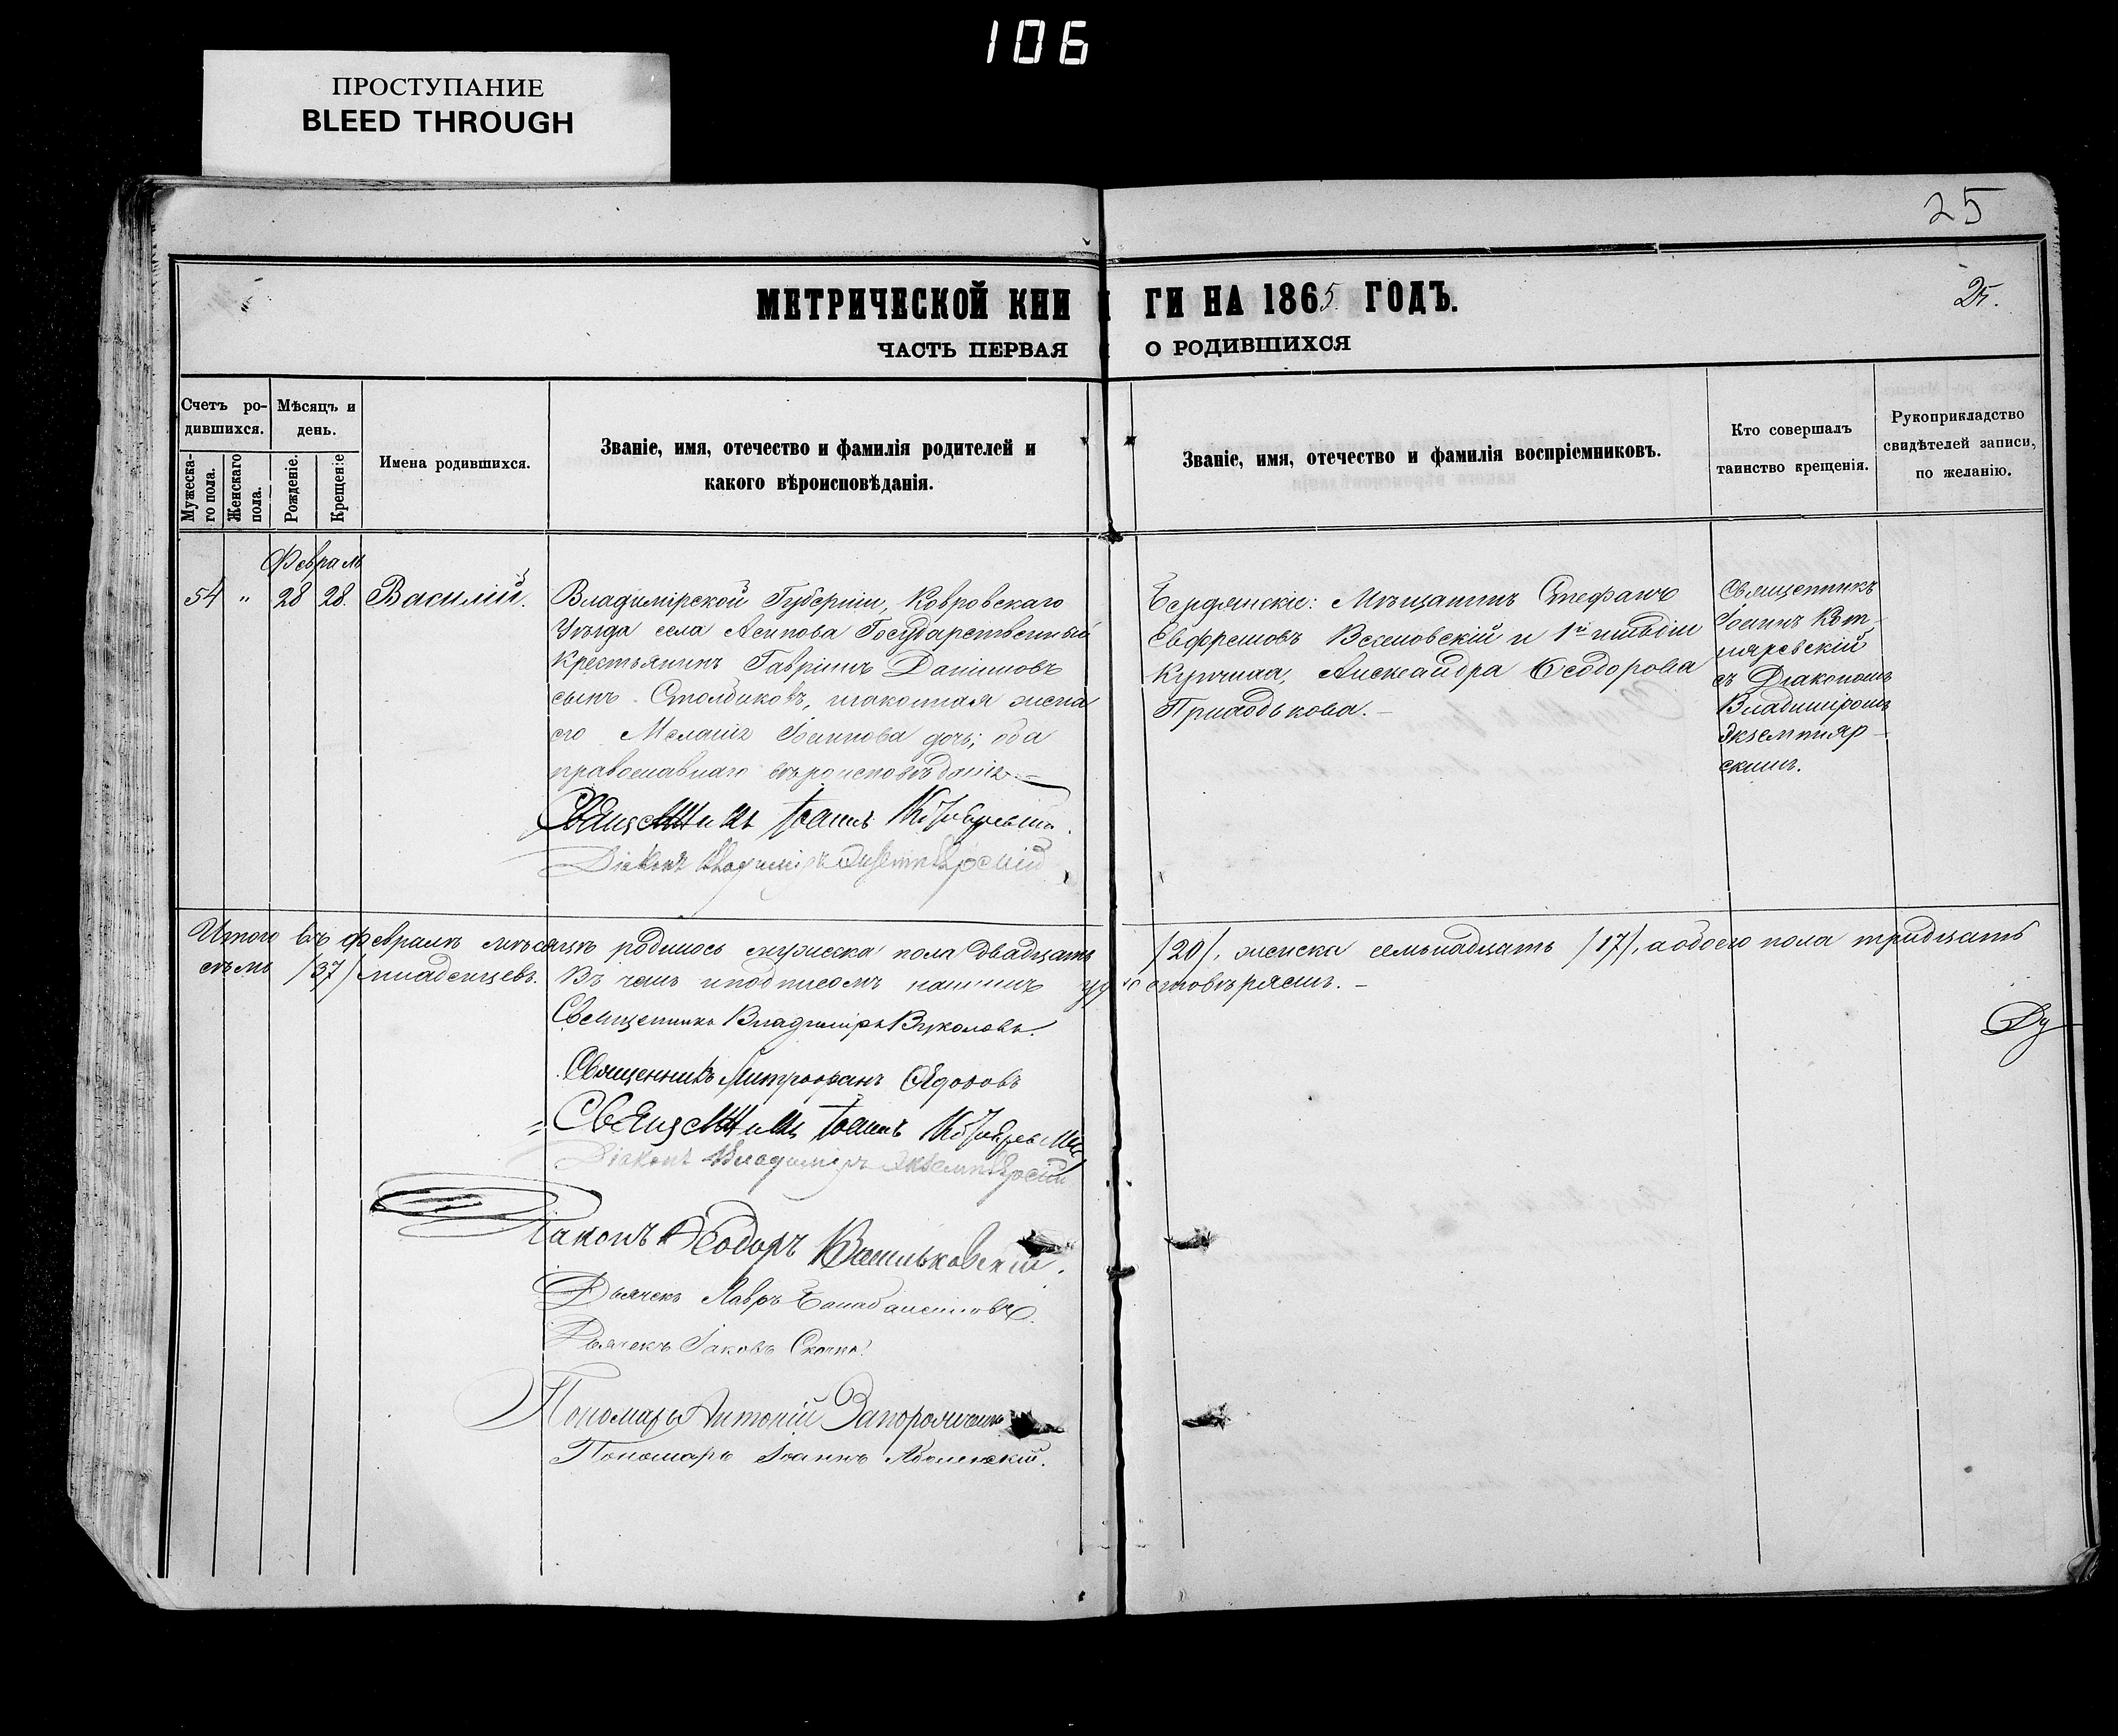 106
ПРОСТУПАНИЕ
BLEED THROUGH
25
25.
МЕТРИЧЕСКОЙ КНИГИ НА 1865 ГОДЪ.
ЧАСТЬ ПЕРВАЯ О РОДИВШИХСЯ
Счетъ ро-
дившихся.
Мужеска-
го пола.
Женскаго
пола.
Мѣсяцъ и
день.
Рожденіе.
Крещеніе
Имена родившихся.
Званіе, имя, отечество и фамилія родителей и
какого вѣроисповѣданія.
Званіе, имя, отечество и фамилія воспріемниковъ.
Кто совершалъ
таинство крещенія.
Рукоприкладство
свидѣтелей записи,
по желанію.
Февраль
54 " 28 28. Василій.
Владимірской Губерніи, Ковровскаго
Уѣзда села Осипова Государственный
Крестьянинъ Гавріилъ Даніиловъ
сынъ Столбиковъ, законная жена
его Меланія Іоаннова дочь; оба
православнаго вѣроисповѣданія. –
Священникъ Іоаннъ Котляревскій.
Діаконъ Владиміръ Экземплярскій
Бердянскіе: Мѣщанинъ Стефанъ
Евфремовъ и 1й гильдіи
Купчиха, Александра Ѳеодорова
Священникъ
Іоаннъ Кот-
ляревскій
съ Діакономъ
Владиміромъ
Экземпляр-
скимъ.
Итого въ Февралѣ мѣсяцѣ родилось мужеска пола двадцать /20/, женска семьнадцать /17/, а обоего пола тридцать
семь /37/ младенцевъ. Въ чемъ и подписомъ нашимъ удостовѣряемъ. –
Ду
Священникъ Владиміръ Вуколовъ.
Священникъ Митрофанъ Ѳедоровъ
Священникъ Іоаннъ Котляревскій
Діаконъ Владиміръ Экземплярскій
Діаконъ Ѳеодоръ Васильковскій.
Дьячекъ Лавръ
Дьячекъ Іаковъ
Пономарь Антоній Запорожченко
Пономарь Іоаннъ Аболенскій.